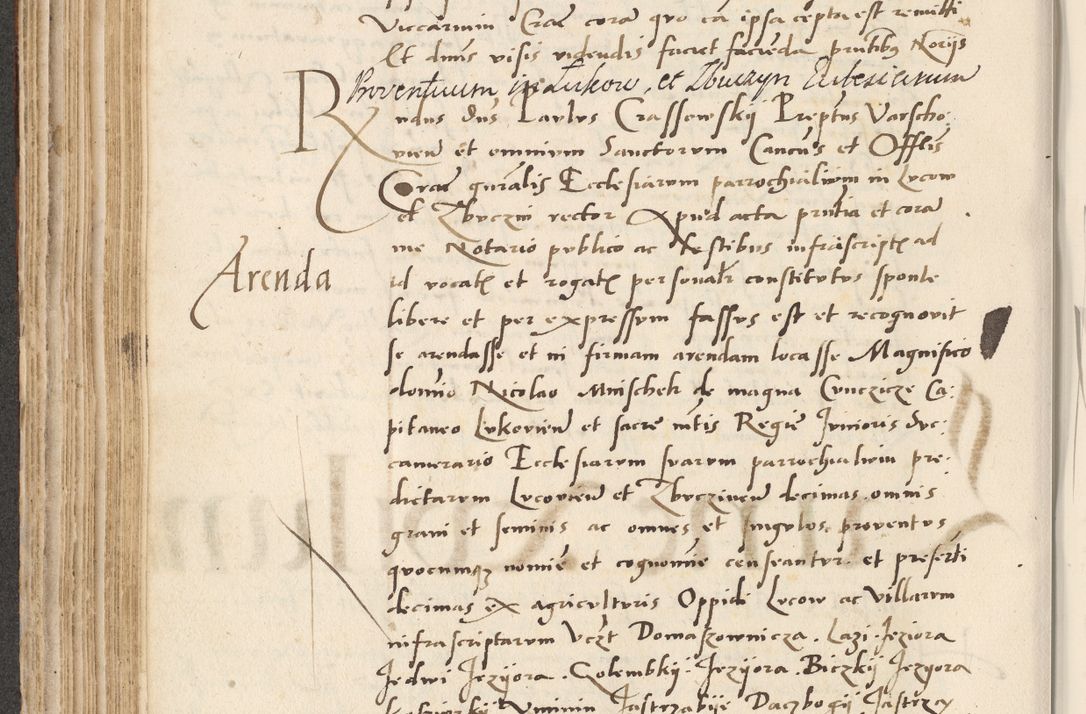 Viccarium Craco cora quo ca ipsa cepta est remitti
Et dnus visis videndis faciet facienda pntibus Norijs
Proventuum in Lukow, et Zbuczyn Ecclesiarum
Rndus dns Paulus Crassowskij Preptus Varscho:
vien et omnium Sanctorum Cancus et Offlis
Crac gnralis Ecclesiarum parrochialium in Lucow
et Zbuczin rector Apud acta pntia et cora
me Notario publico ac testibus infrascript ad
Arenda
id vocat et rogat personalr constitutus sponte
libere et per expressum fassus est et recognovit
se arendasse et in firmam arendam locasse Magnifico
domino Nicolao Mnischek de magna Cunczicze Ca:
pitaneo Lukovien et sacre mtis Regie Junioris suc:
camerario Ecclesiarum suarum parrochialium pre:
dictarum Lucovien et Zbuczinen decimas omnis
grani et seminis ac omnes et singulos proventus
quocumque nomine et cognomine censeantur et preserti
decimas ex agriculturis Oppidi Lucow ac villarum
infrascriptarum Uczt Domaszownicza. Lazi. Jeziora
Jedwi Jezyora. Golembkij Jezijora. Biczkij Jezyora
Uminin Jastrzabije Daczbogij Jastrzą